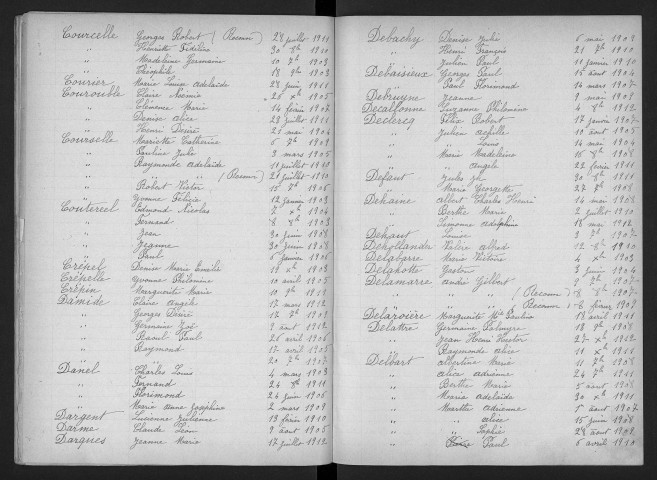 Courcelle Georges Robert (Reconn.) 28 juillet 1911
" Henriette Fidéline 30 8bre 1910
" Madeleine Germaine 10 7bre 1903
" Théophile 18 9bre 1903
Courier Marie Louise Adelaïde 28 juin 1911
Courouble Claire Noémie 20 xbre 1905
" Clémence Marie 14 février 1907
" Denise Alice 23 juillet 1911
" Henri Désiré 21 mai 1904
Courselle Mariette Catherine 6 7bre 1909
" Pauline Julie 3 mars 1905
" Raymonde Adelaïde juillet
" " (Reconn.) 21 juillet 1910
" Robert Victor 15 7bre 1906
" Yvonne Félicia 12 janvier 1903
Coutercel Edmond Nicolas 2 xbre 1904
" Fernand 8 8bre 1903
" Jean 30 juin 1908
" Jeanne 30 juin 1908
" Paul 5 janvier 1906
Crépel Denise Marie Emilie 19 xbre 1903
Crépelle Yvonne Philomène 10 avril 1905
Crépin Marguerite Marie 10 9bre 1911
Damide Claire Angèle 17 mars 1912
" Georges Désiré 17 7bre 1909
" Germaine Zoé 9 août 1912
" Raoul Paul 21 avril 1906
" Raymond 17 avril 1905
20 7bre
Danel Charles Louis 4 mars 1903
" Fernand 24 8bre 1911
" Florimond 24 juin 1906
" Marie Anne Joséphine 2 mars 1909
Dargent Lucienne Julienne 13 février 1910
Darme Claude Léon 9 août 1905
Darques Jeanne Marie 17 juillet 1912
Debachy Denise Julie 6 mai 1903
" Henri François 21 7bre 1910
" Julien Paul 11 janvier 1910
Debaisieux Georges Paul 15 août 1904
" Paul Florimond 14 mars 1907
Debruyne Jeanne 9 mai 1907
Decallonne Suzanne Philomène 4 8bre 1912
Declercq Félix Robert 17 janvier 1907
" Julien Achille 10 août 1905
" Louis 14 mai 1904
" Marie Madeleine 16 8bre 1908
" Angèle 22 février 1911
Defaut Jules 30 8bre 1911
" Marie Georgette 27 8bre 1908
Dehaine Albert Charles Henri 14 mai 1908
" Berthe Marie 2 juillet 1910
" Simonne Adolphine 18 mai 1912
Dehaut Louise 3 7bre 1907
Dehollande Valère Alfred 12 8bre 1910
Delabarre Marie Victoire 4 xbre 1903
Delahotte Gaston 3 juin 1904
Delamarre André Gilbert 9 7bre 1907
" " (Reconn.) 18 8bre 1907
" " Reconn. 6 février 1909
Delaroière Marguerite Marie Pauline 18 avril 1911
Delattre Germaine Palmyre 18 9bre 1908
" Jean Henri Hector 27 xbre 1912
" Raymonde Alice 11 xbre 1911
Delbart Albertine Marie 11 7bre 1908
" Alice Adrienne 24 7bre 1911
" Berthe Marie 5 août 1908
" Maria Adelaïde 30 xbre 1911
" Marthe Adrienne 5 août 1907
" " Alice 15 juin 1908
" " Sophie 28 août 1902
" Paul 6 avril 1910